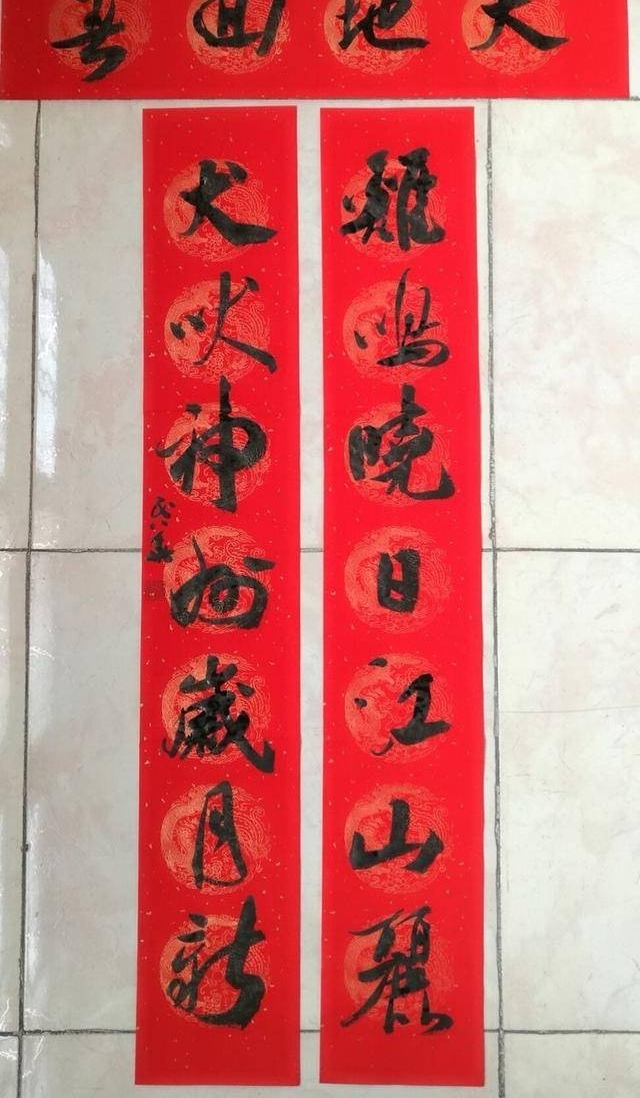 天地回春
雞鳴曉日江山麗
犬吠神州歲月新